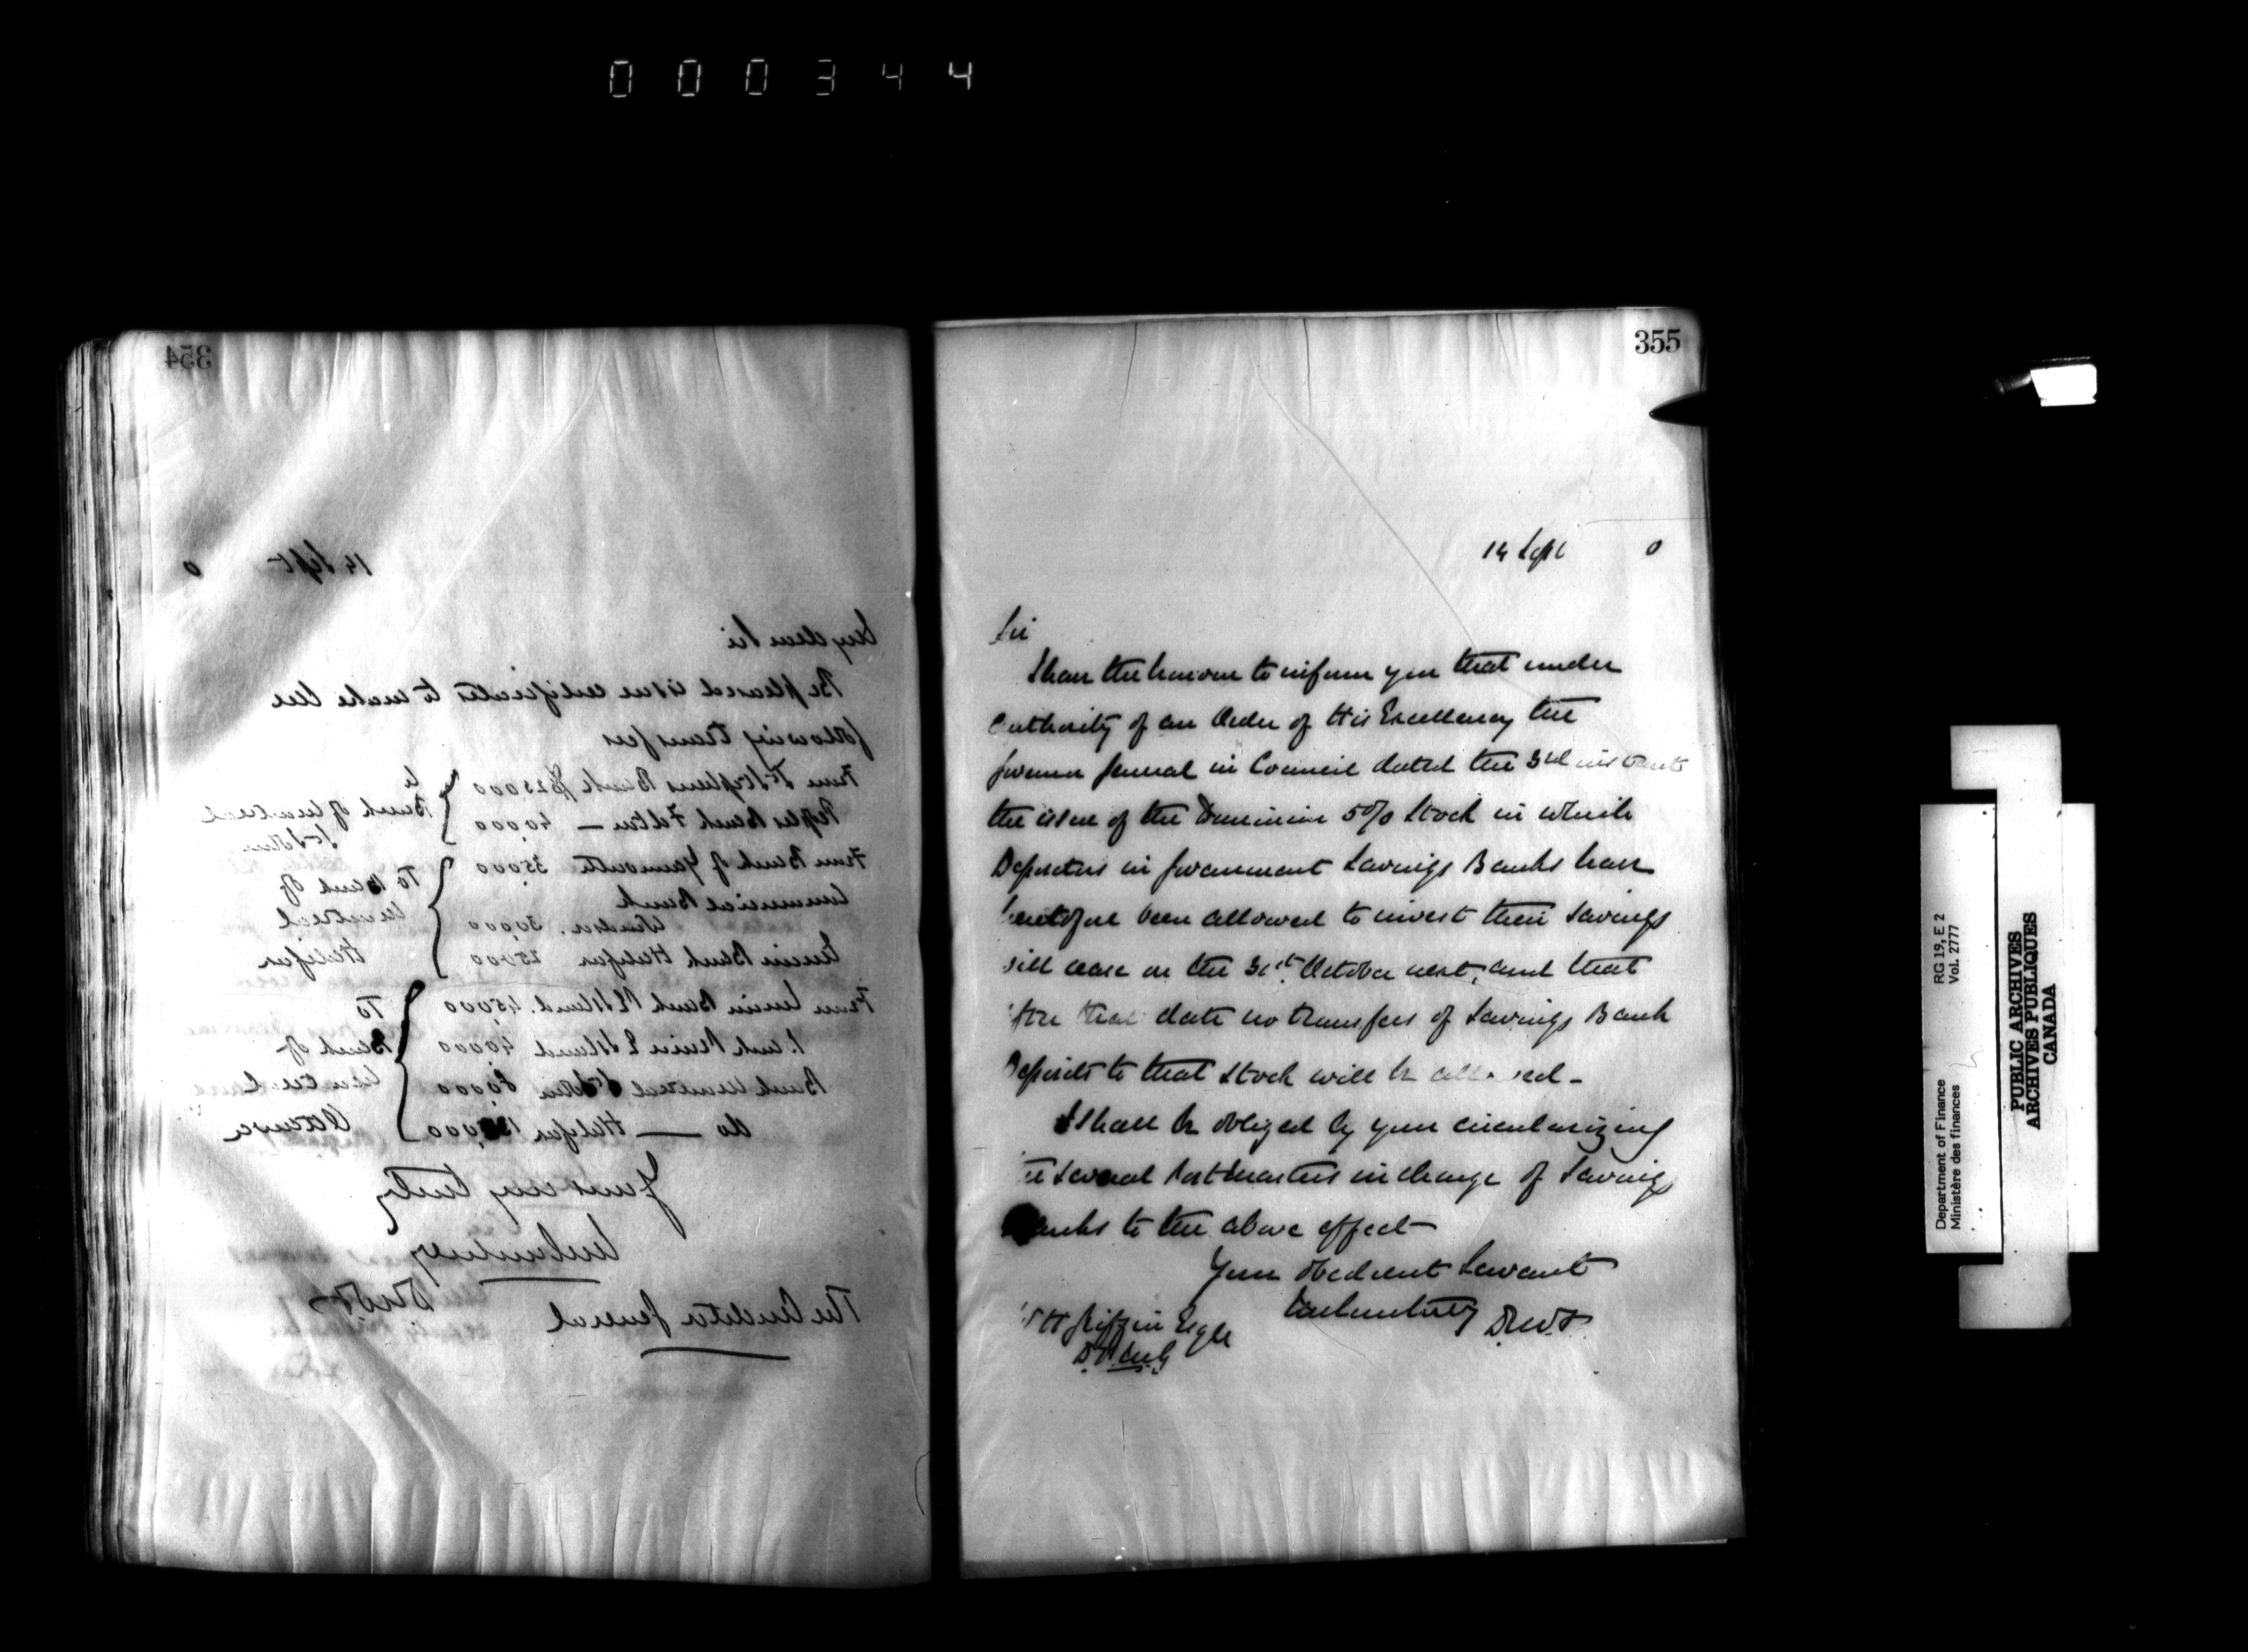 000344
354
14 Sept 0
My dear Sir
Be pleased issue certificates to make the
following transfers
From St Stephens Bank $25000
Peoples Bank Fcton — 40,000
To Bank of Montreal
St John
From Bank of Yarmouth 35000
Commercial Bank
Windsor. 30,000
Union Bank Halifax 25000
To Bank of
Montreal
Halifax
From Union Bank PE Island. 45,000
Bank Montreal St John 80,000
do — Halifax
To
Bank of
Montreal
Ottawa
Yours very truly
JMCourtney
DMF
The Auditor General
355
14 Sept 0
Sir
I have the honour to inform you that under
authority of an Order of His Excellency the
Governor General in Council dated the 3rd instant
the issue of the Dominion 5% Stock in which
Depositors in Government Savings Banks have
heretofore been allowed to invest their savings
will cease on the 31st October next, and that
after that date no transfers of Savings Bank
Deposits to that Stock will be allowed -
I shall be obliged by your circularizing
the several Postmasters in charge of Savings
Banks to the above effect
Your obedient Servant
JMCourtney DMF.
WH Griffin Esqre
D.P.M.G
Department of Finance
Ministère des finances
RG 19, E 2
Vol. 2777
PUBLIC ARCHIVES
ARCHIVES PUBLIQUES
CANADA